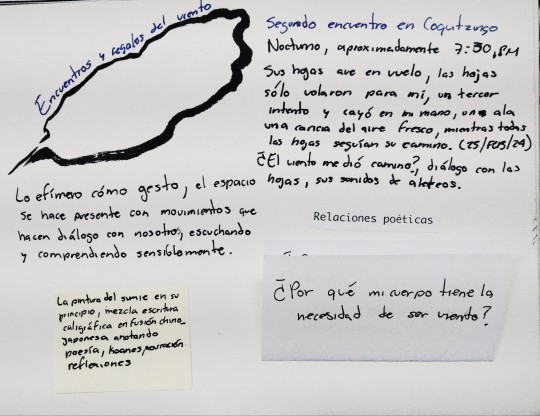 Encuentros y regalos del viento
Segundo encuentro en Coquitzungo
Nocturno, aproximadamente 7:30, PM
Sus hojas ave en vuelo, las hojas
sólo volaron para mí, un tercer
intento y cayó en mi mano, un ala
una caricia del aire fresco, mientras todas
las hojas seguían su camino. (25/FEB/24)
¿El viento me dió camino?, diálogo con las
hojas, sus sonidos de aleteos.
Lo efímero cómo gesto, el espacio
se hace presente con movimientos que
hacen diálogo con nosotros, escuchando
y comprendiendo sensiblemente.
Relaciones poéticas
La pintura del sumie en su
principio, mezcla escritura
caligráfica en fusión chino_
japonesa anotando
poesía, koanes, narración
reflexiones
¿Por qué mi cuerpo tiene la
necesidad de ser viento?